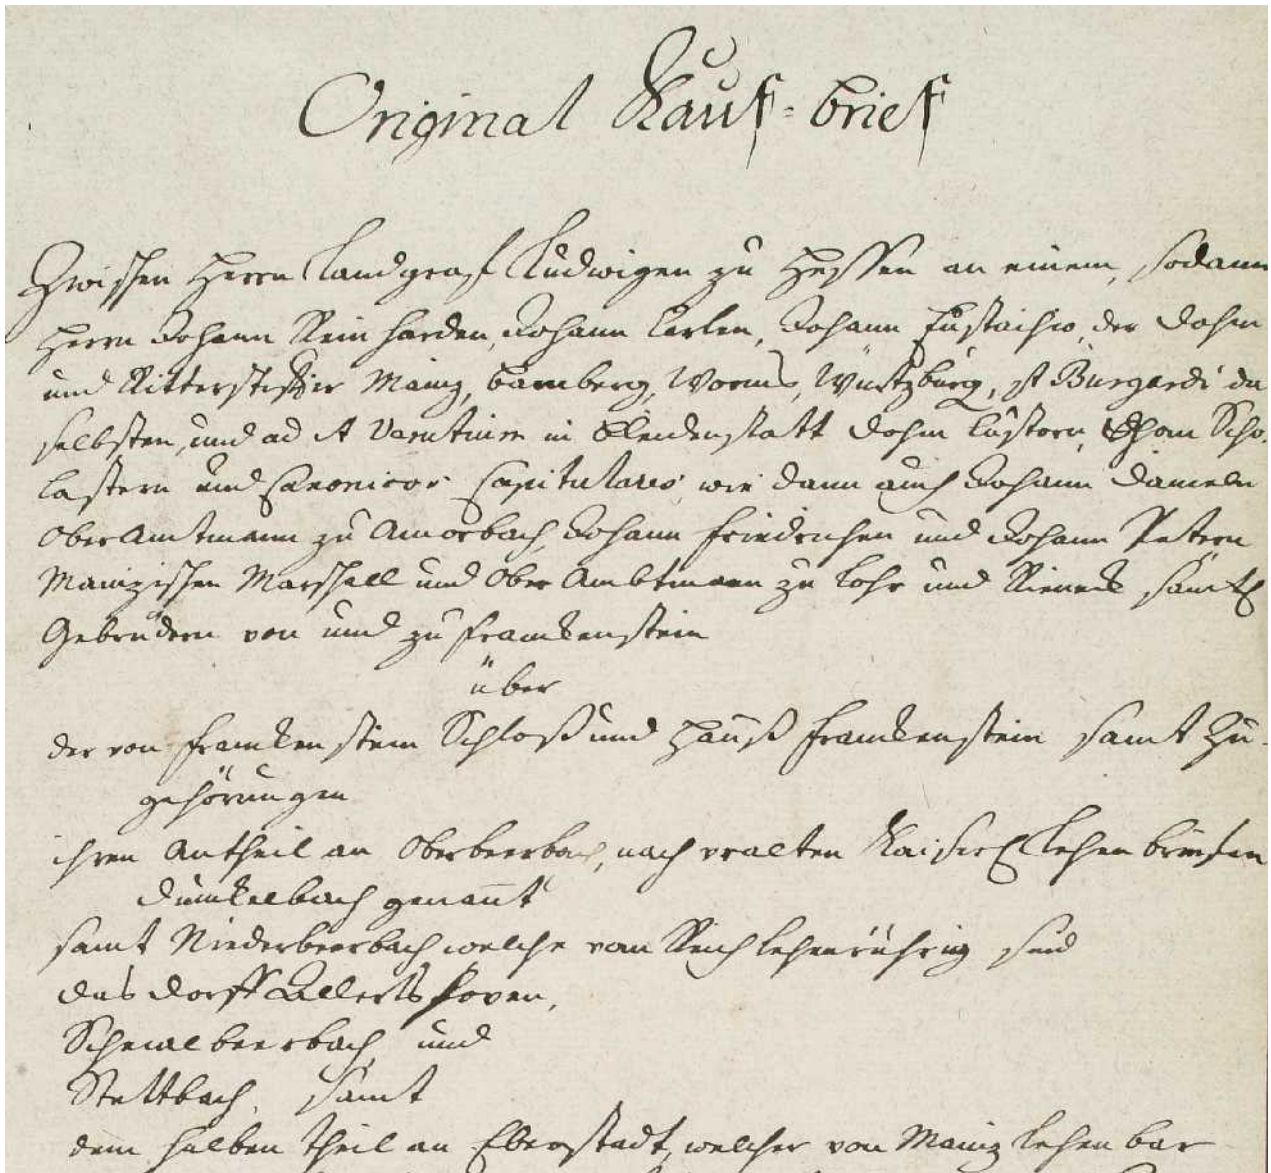 Original Kauf-brief
Zwischen Herrn Landgraf Ludwigen zu Hessen an einem, sodann
Herrn Johann Reinharden, Johann Carlen, Johann Eustachio, der Dohm
und Ritterstiffter Maintz, Bamberg, Worms, Würtzburg, st Burgardi da
selbsten, und ad st in Bleidenstatt Dohm Custorn, Dhom Scho-
lastern und Canonicor. Capitulares, wie dann auch Johann Danieln
Ober Amtmann zu Amorbach, Johann Friedrichen und Johann Petern
Mainzischen Marschall und Ober Ambtmann zu Lohr und Rieneck sämtl
Gebrüdern von und zu Franckenstein
über
der von Franckenstein Schloß und Hauß Franckenstein samt Zu-
gehörungen
ihren Antheil an Oberbeerbach, nach uralten Kaiserl Lehen briefen
Dunckelbach genannt
samt Niederbeerbach welche vom Reich lehenrührig sind
das Dorff Allertshoven,
Schmalbeerbach, und
Stettbach, samt
dem halben Theil an Eberstadt, welcher von Mainz lehenbar